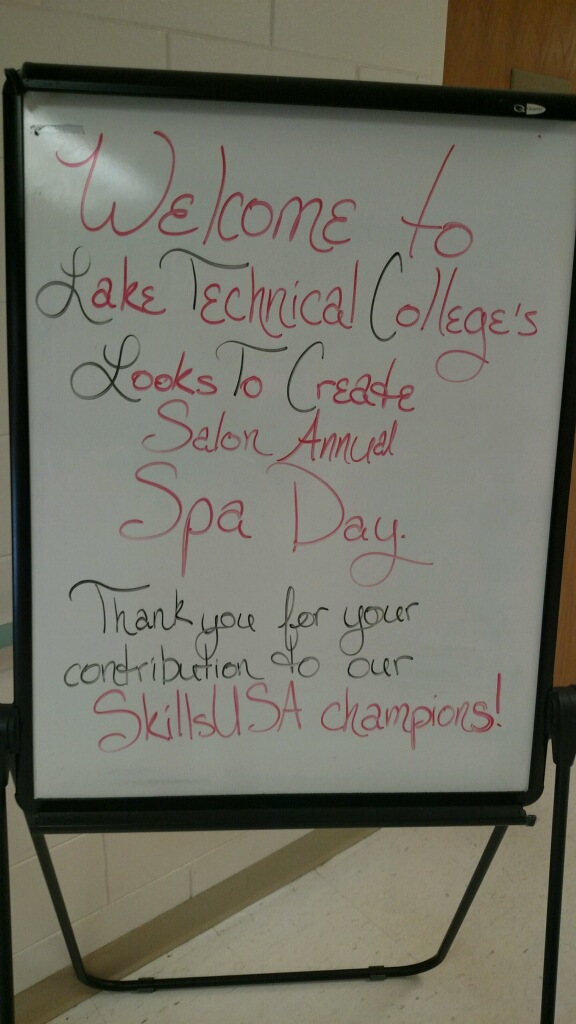 Welcome to
Lake Technical College's
Looks To Create
Salon Annual
Spa Day.
Thank you for your
contribution to our
SkillsUSA champions!